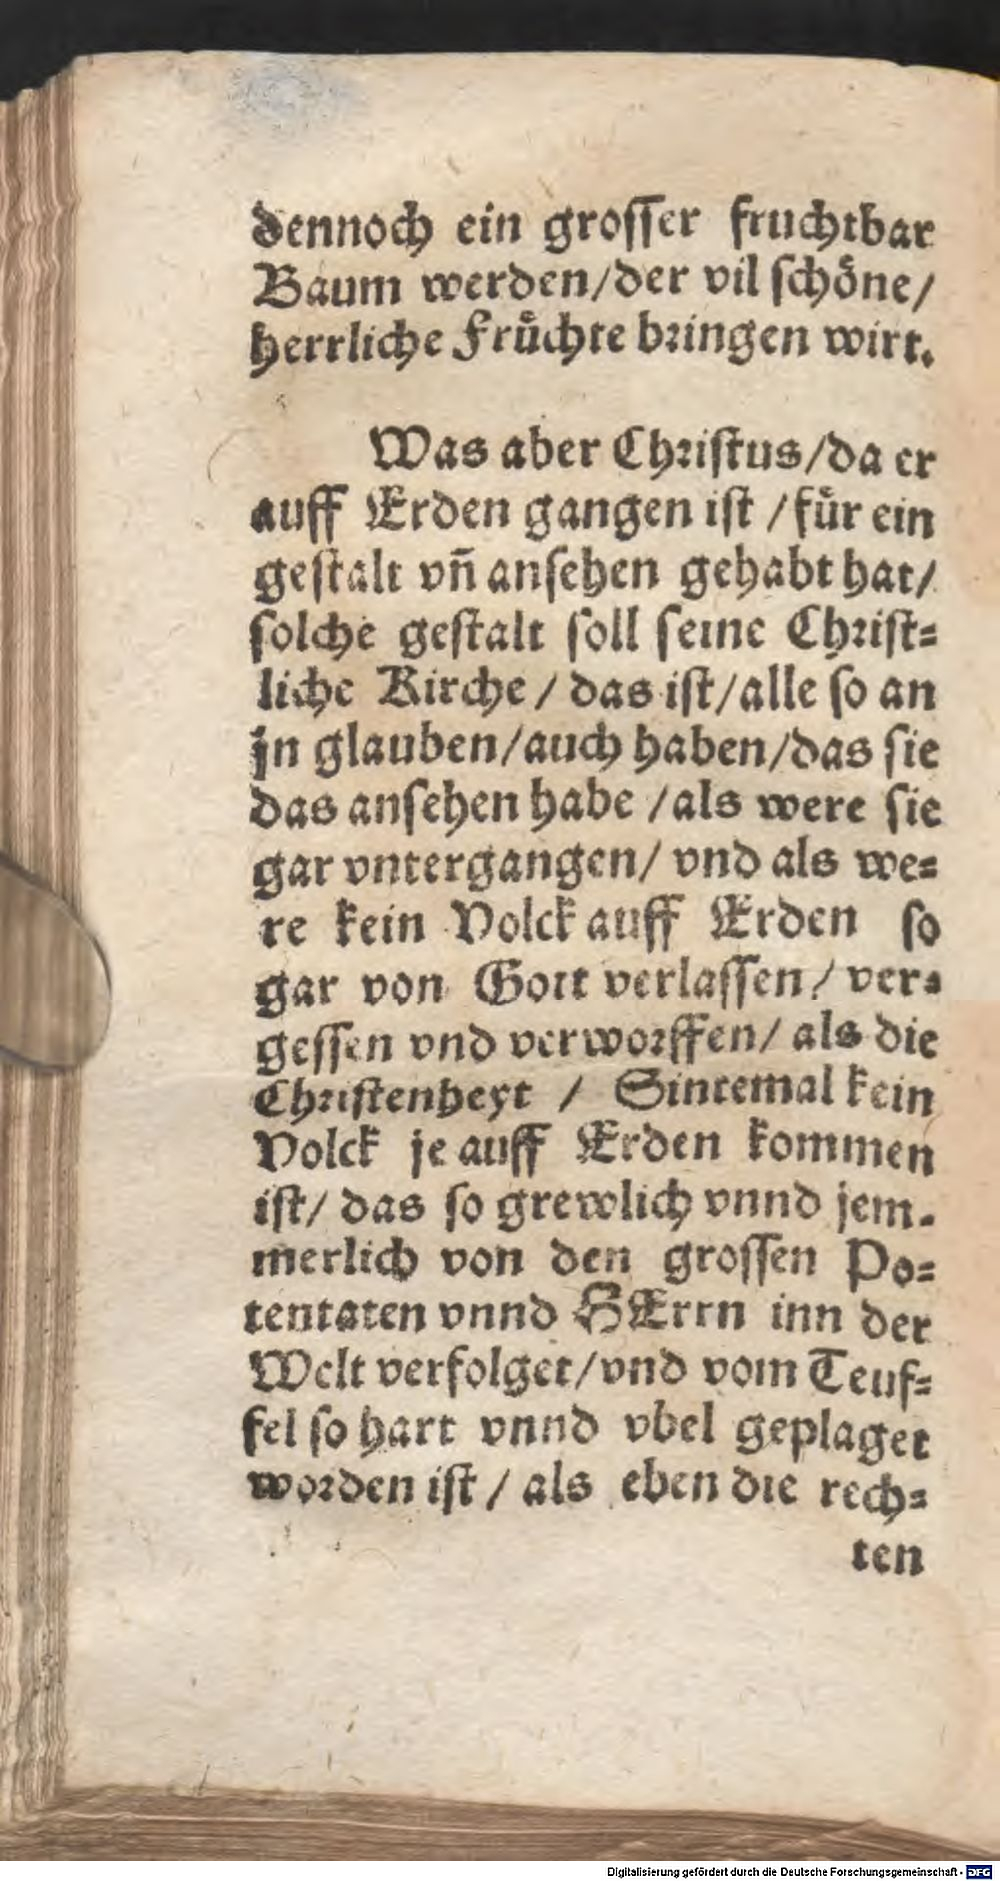 dennoch ein groſſer fruchtbar
Baum werden/der vil ſchoͤne/
herrliche Fruͤchte bringen wirt.
Was aber Chriſtus/da er
auff Erden gangen iſt /fuͤr ein
geſtalt vñ anſehen gehabt hat/
ſolche geſtalt ſoll ſeine Chriſt⸗
liche Kirche / das iſt/alle ſo an
jn glauben/auch haben/das ſie
das anſehen habe /als were ſie
gar vntergangen/ vnd als we⸗
re kein Volck auff Erden ſo
gar von Gott verlaſſen/ ver⸗
geſſen vnd verworffen/ als die
Chriſtenheyt / Sintemal kein
Volck je auff Erden kommen
iſt/ das ſo grewlich vnnd jem⸗
merlich von den groſſen Po⸗
tentaten vnnd HErrn inn der
Welt verfolget/vnd vom Teuf⸗
fel ſo hart vnnd vbel geplaget
worden iſt / als eben die rech⸗
ten
Digitalisierung gefördert durch die Deutsche Forschungsgemeinschaft - DFG